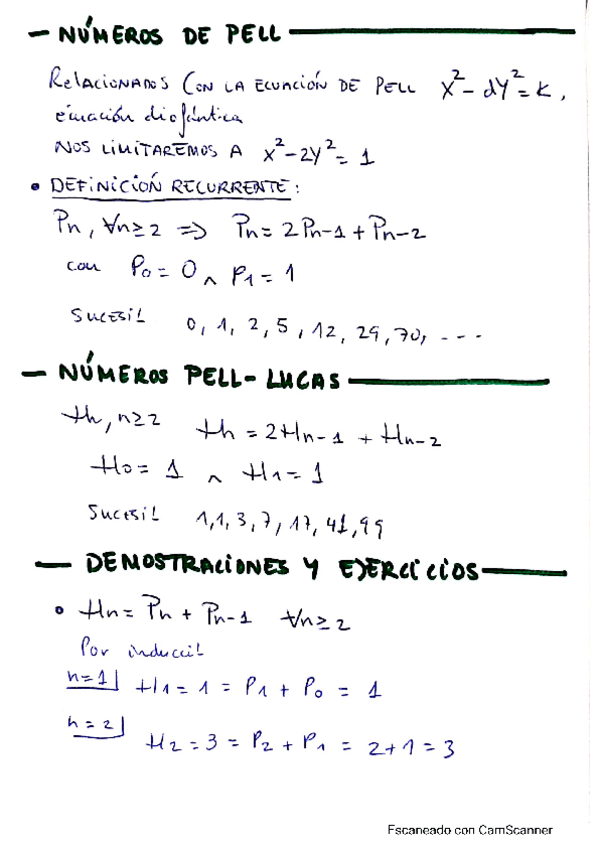 - NÚMEROS DE PELL
RELACIONADOS CON LA ECUACIÓN DE PELL x² - dy² = k,
ecuación diofántica
NOS LIMITAREMOS A x² - 2y² = 1
• DEFINICIÓN RECURRENTE:
Pn, ∀n≥2 ⇒ Pn = 2Pn-1 + Pn-2
con P0 = 0 ∧ P1 = 1
SUCESI! 0, 1, 2, 5, 12, 29, 70, ...
- NÚMEROS PELL-LUCAS
Hn, n≥2 Hn = 2Hn-1 + Hn-2
H0 = 1 ∧ H1 = 1
SUCESI! 1, 1, 3, 7, 17, 41, 99
- DEMOSTRACIONES Y EJERCICIOS
• Hn = Pn + Pn-1 ∀n≥2
Por inducci!
n=1 H1 = 1 = P1 + P0 = 1
n=2 H2 = 3 = P2 + P1 = 2+1 = 3
Escaneado con CamScanner